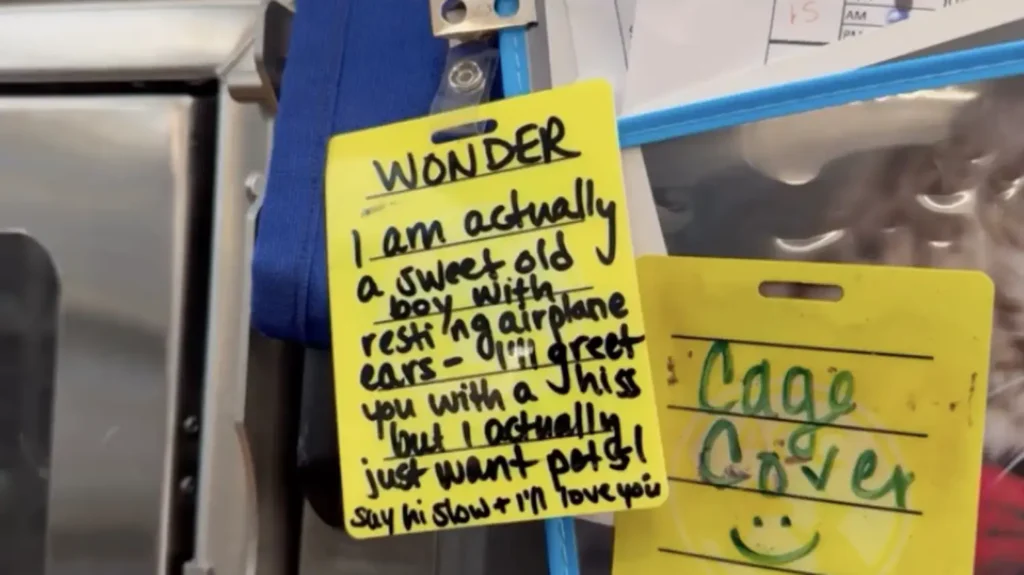 WONDER
I am actually
a sweet old
boy with
resting airplane
ears - I'll greet
you with a hiss
but I actually
just want pets!
say hi slow + I'll love you
Cage
Cover
15
AM
PM